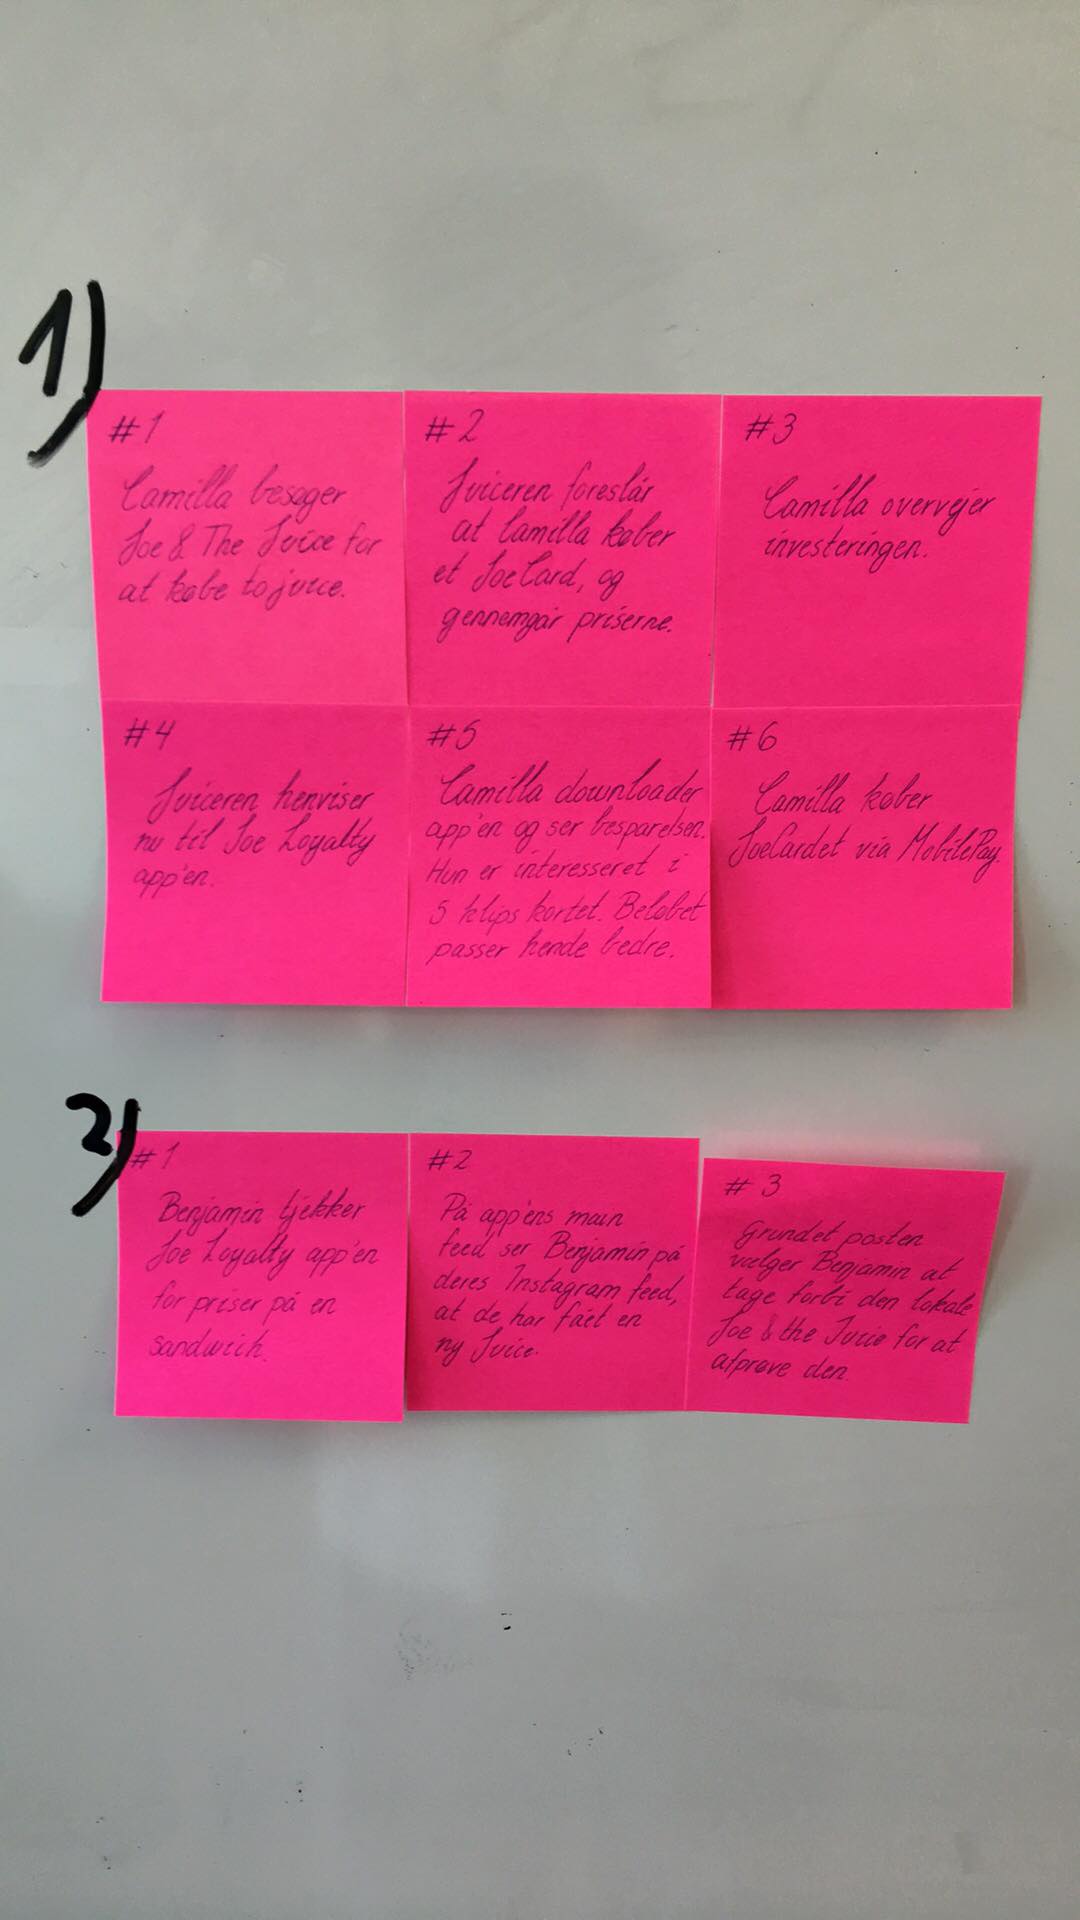 1)
#1
Camilla besøger
Joe & The Juice for
at købe to juice.
#2
Juiceren foreslår
at Camilla køber
et JoeCard, og
gennemgår priserne.
#3
Camilla overvejer
investeringen.
#4
Juiceren henviser
nu til Joe Loyalty
app'en.
#5
Camilla downloader
app'en og ser besparelsen.
Hun er interesseret i
5 klips kortet. Beløbet
passer hende bedre.
#6
Camilla køber
JoeCardet via MobilePay.
2)
#1
Benjamin tjekker
Joe Loyalty app'en
for priser på en
sandwich.
#2
På app'ens main
feed ser Benjamin på
deres Instagram feed,
at de har fået en
ny Juice.
#3
Grundet posten
vælger Benjamin at
tage forbi den lokale
Joe & the Juice for at
afprøve den.